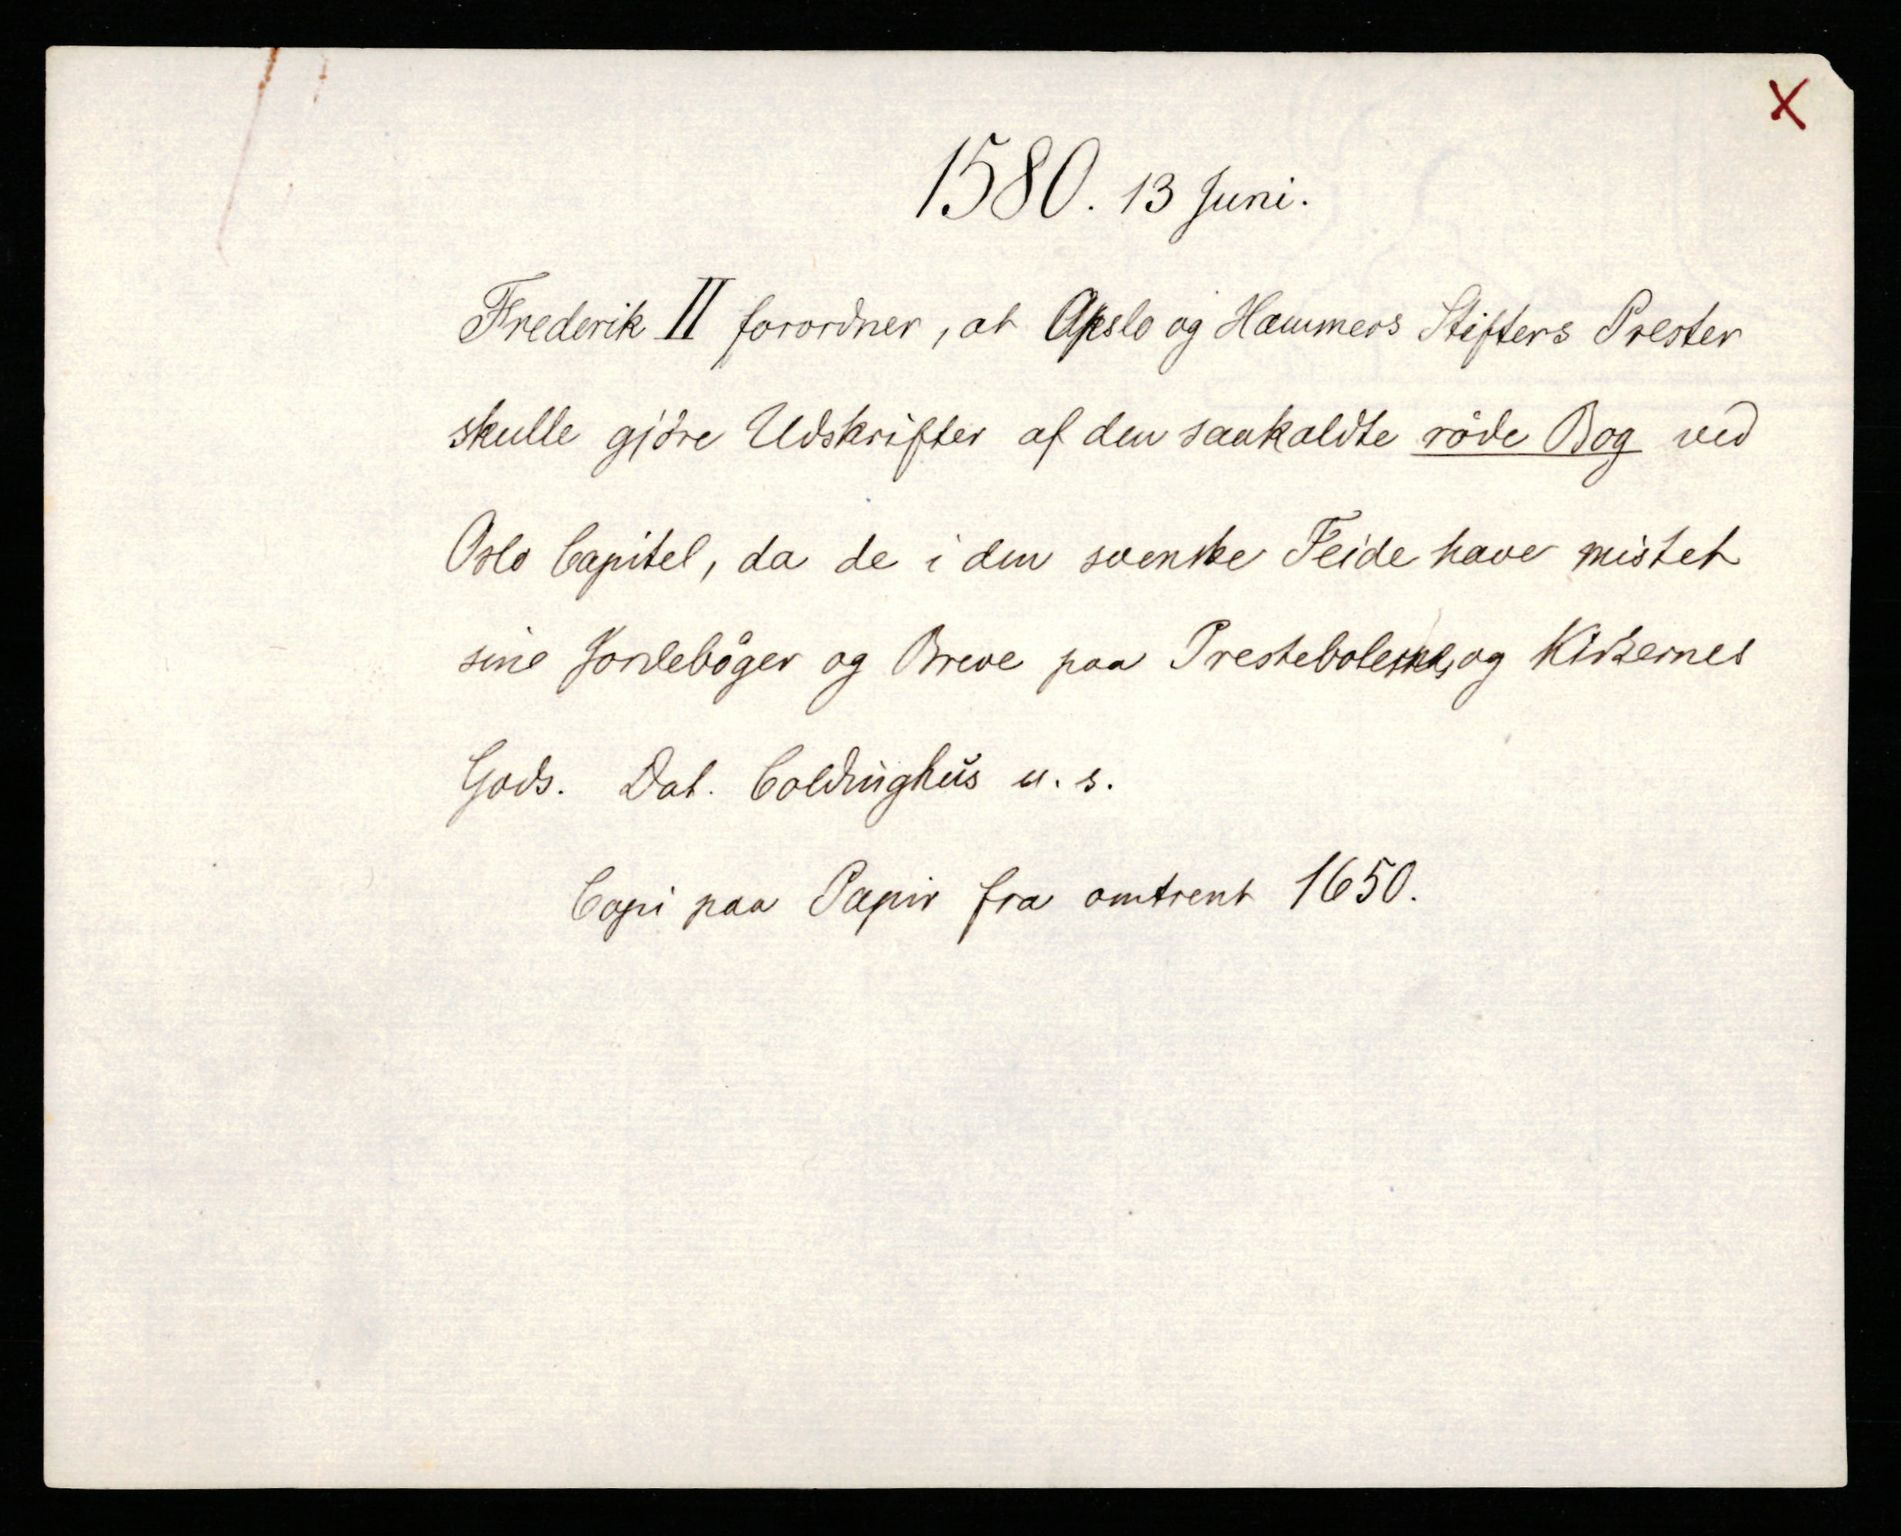 X
1580. 13 Juni.
Frederik II forordner, at Opslo og Hammers Stifters Prester
skulle gjöre Udskrifter af den saakaldte röde Bog ved
Oslo Capitel, da de i den svenske Feide have mistet
sine Jordebøger og Breve paa og Kirkernes
Gods. Dat. Coldinghus u. s.
Copi paa Papir fra omtrent 1650.